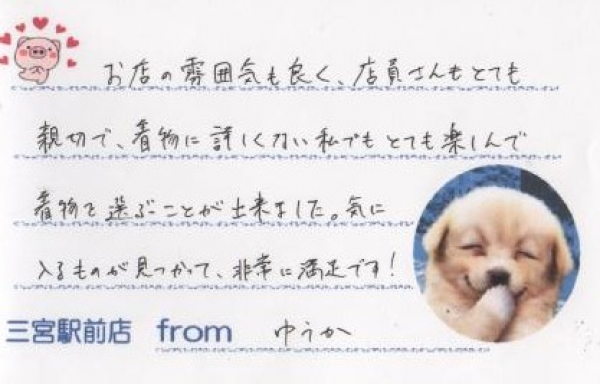 お店の雰囲気も良く、店員さんもとても
親切で、着物に詳しくない私でもとても楽しんで
着物を選ぶことが出来ました。気に
入るものが見つかって、非常に満足です!
三宮駅前店 from ゆうか